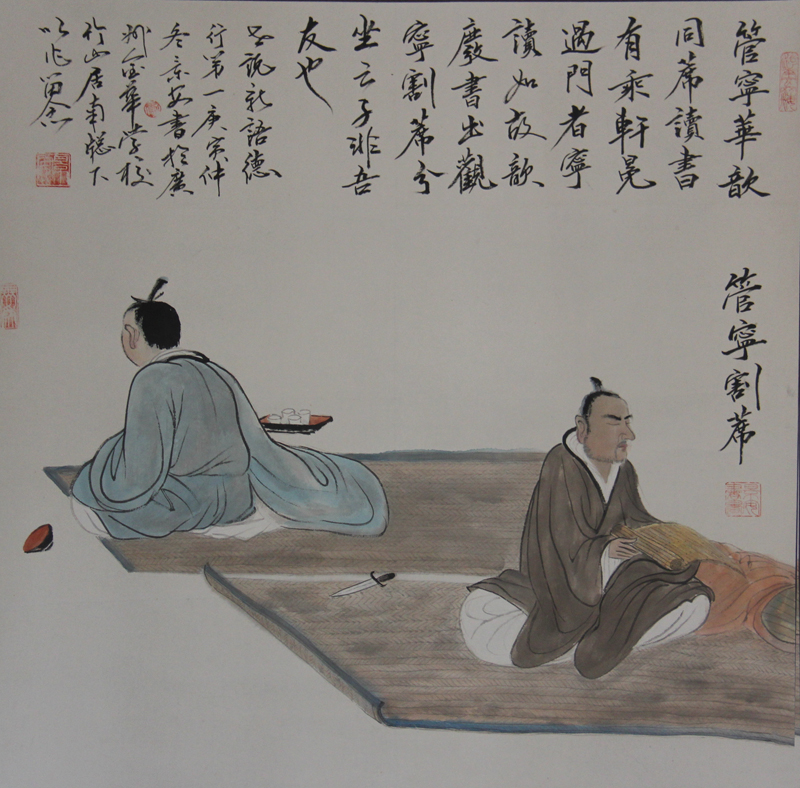 管寧華歆
同蓆讀書
有乘軒冕
過門者寧
讀如故歆
廢書出觀
寧割蓆分
坐云子非吾
友也
世說新語德
行第一庚寅仲
冬 書於廣
州 華學校
山居南牕下
以作留念
管寧割蓆